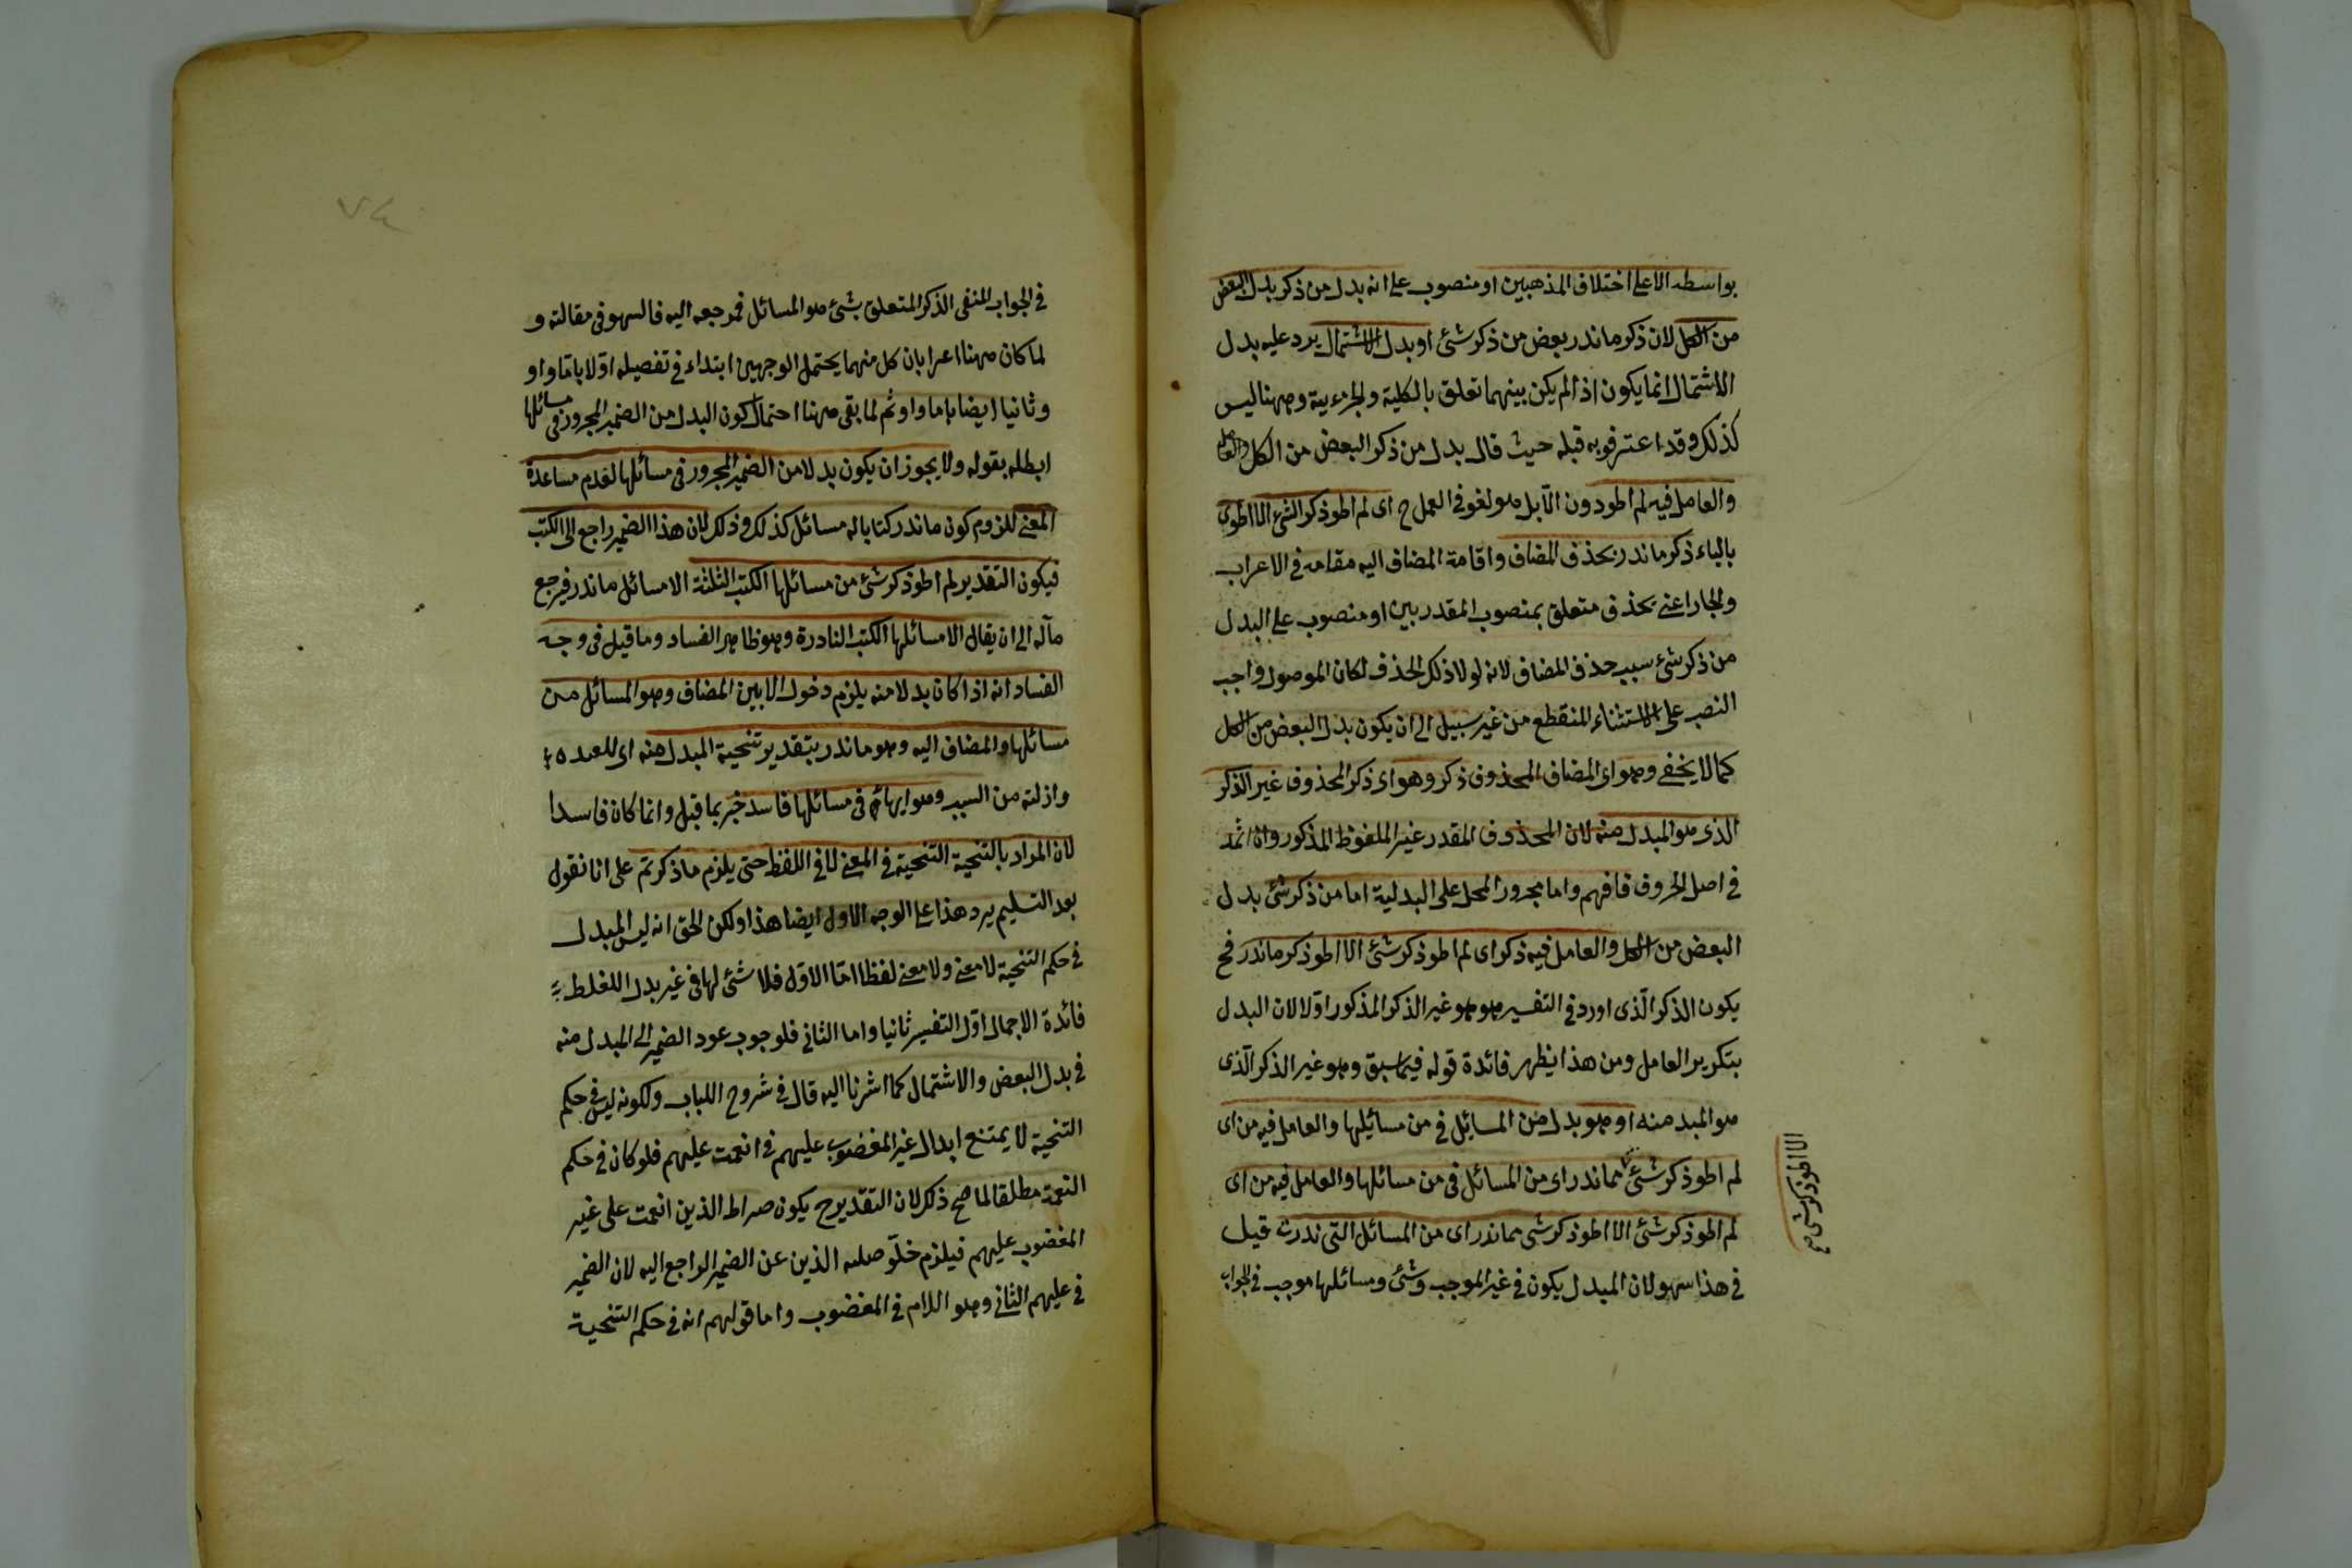 بواسطه الا على اختلاف المذهبين او منصوب على انه بدل من ذكر بدل البعض
من الكل لان ذكر ما ندر بعض من ذكر شئ او بدل الاشتمال يرد عليه بدل
الاشتمال انما يكون اذا لم يكن بينهما تعلق بالكلية والجزءيية وههنا ليس
كذلك وقد اعترفوبه قبله حيث قال بدل من ذكر البعض من الكل والعامل
والعامل فيه لم اطو دون الا بل هو لغو في العمل ح اى لم اطو ذكر الشئ الا اطوى
بالياء ذكر ما ندر بحذف المضاف واقامة المضاف اليه مقامه في الاعراب
والجار اعنى بحذف متعلق بمنصوب المقدر بين او منصوب على البدل
من ذكر شئ سبب حذف المضاف لانه لولا ذلك الحذف لكان الموصول واجب
النصب على الاستثناء المنقطع من غير سبيل الى ان يكون بدل البعض من الكل
كما لا يخفى وهو اى المضاف المحذوف ذكر وهو اى ذكر المحذوف غير الذكر
الذى هو المبدل منه لان المحذوف المقدر غير الملفوظ المذكور وان اتحد
في اصل الحروف فافهم واما مجرور المحل على البدلية اما من ذكر شئ بدل
البعض من الكل والعامل فيه ذكر اى لم اطو ذكر شئ الا اطو ذكر ما ندر فح
يكون الذكر الّذى اورد في التفسير هو هو غير الذكر المذكور اوّلا لان البدل
بتكرير العامل ومن هذا يظهر فائدة قوله فيما سبق وهو غير الذكر الّذى
هو المبد منه او هو بدل من المسائل في من مسائلها والعامل فيه من اى
لم اطو ذكر شئ مما ندر اى من المسائل فى من مسائلها والعامل فيه من اى
لم اطو ذكر شئ الا اطو ذكر شى مما ندر اى من المسائل التى ندرت قيل
في هذا سهو لان المبدل يكون في غير الموجب وشئ ومسائلها موجب في الجواب
الا اطو ذكر شى صح
٧٤
في الجواب المنفى الذكر المتعلق بشئ هو المسائل فمرجعه اليه فالسهو فى مقالته و
لما كان ههنا اعرابان كل منهما يحتمل الوجهين ابتداء في تفصيله اوّلا باقا واو
وثانيا ايضا باما واو ثم لما بقى ههنا احتمال كون البدل من الضمير المجرور في مسائلها
ابطله بقوله ولا يجوز ان يكون بدلا من الضمير المجرور فى مسائلها لعدم مساعدة
المعنى للزوم كون ما ندر كتابا له مسائل كذلك وذلك لان هذا الضمير راجع الى الكتب
فيكون التقدير لم اطو ذكر شئ من مسائلها الكتب الثلثة الا مسائل ما ندر فيرجع
مآله الى ان يقال الا مسائلها الكتب النادرة وهو ظاهر الفساد وما قيل فى وجه
الفساد انه اذا كان بدلا منه يلزم دخول الا بين المضاف وهو المسائل من
مسائلها والمضاف اليه وهو ما ندر بتقدير تنحية المبدل منه اى
وازلته من السبب وهو فى مسائلها فاسد خبر بما قبل وانما كان فاسدا
لان المراد بالتنحية التنحية في المعنى لا في اللفظ حتى يلزم ما ذكرتم على انا نقول
بعد التسليم يرد هذا على الوجه الاول ايضا هذا ولكن الحق انه ليس المبدل
في حكم التنحية لا معنى ولا معنى لفظا امّا الاوّل فلا شئ لها في غير بدل الغلط
فائدة الاجمال اوّل التفسير ثانيا واما الثانى فلوجوب عود الضمير الى المبدل منه
في بدل البعض والاشتمال كما اشرنا اليه قال في شروح اللباب ولكونه ليس في حكم
التنحية لا يمتنع ابدال غير المغضوب عليهم فى انعمت عليهم فلو كان في حكم
التنحية مطلقا لما صح ذلك لان التقدير ح يكون صراط الذين انعمت على غير
المغضوب عليهم فيلزم خلّو صله الذين عن الضمير الراجع اليه لان الضمير
في عليهم الثاني وهو اللام في المغضوب واما قولهم انه في حكم التنحية